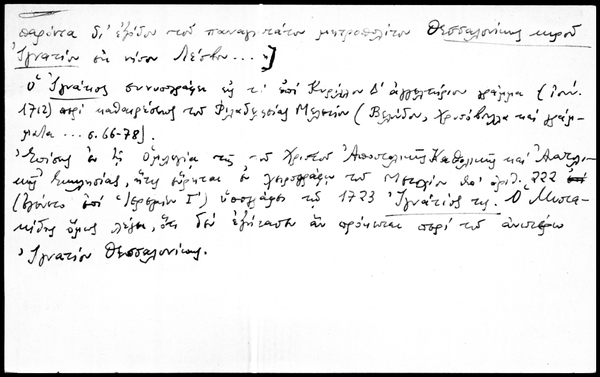 παρόντα δι' ἐξόδου τοῦ παναγιωτάτου μητροπολίτου Θεσσαλονίκης κυροῦ
Ἰγνατίου ἐκ νήσου Λέσβου...]
Ὁ Ἰγνάτιος συνυπογράφει εἰς τὸ ἐπὶ Κυρίλλου Δ' ἀγγελτήριον γράμμα (Ἰούν.
1712) περὶ καθαιρέσεως τοῦ Φιλαδελφείας Μελετίου (Βελούδου, Χρυσόβουλλα καὶ γράμ-
ματα ... σ. 66-78).
Ἐπίσης ἐν τῇ Ὁμολογίᾳ τῆς τοῦ Χριστοῦ Ἀποστολικῆς Καθολικῆς καὶ Ἀνατολι-
κῆς Ἐκκλησίας, ἥτις εὕρηται ἐν χειρογράφῳ τοῦ Μετοχίου ὑπ' ἀριθ. 722
(ἐγένετο ἐπὶ Ἱερεμίου Γ') ὑπογράφει τῷ 1723 Ἰγνάτιός τις. Ὁ Μυστα-
κίδης ὅμως λέγει, ὅτι δὲν ἐξήτασεν ἂν πρόκειται περὶ τοῦ ἀνωτέρω
Ἰγνατίου Θεσσαλονίκης.